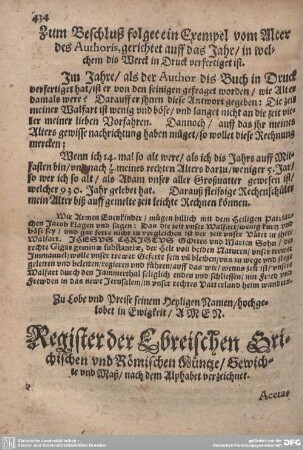 434
Zum Beschluß folget ein Exempel vom Alter
des Authoris, gerichtet auff das Jahr/ in wel-
chem dis Werck in Druck verfertiget ist.
Im Jahre/ als der Author dis Buch in Druck
verfertiget hat/ ist er von den seinigen gefraget worden/ wie Alt er
damals were? Darauff er ihnen diese Antwort gegeben: Die zeit
meiner Walfart ist wenig vnd böse/ vnd langet nicht an die zeit vie-
ler meiner lieben Vorfahren. Dannoch/ auff das ihr meines
Alters gewisse nachrichtung haben müget/ so wollet diese Rechnung
mercken:
Wenn ich 14. mal so alt were/ als ich dis Jahrs auff Mit-
fasten bin/ vnd nach meines rechten Alters darzu/ weniger 5. Jar/
so wer ich so alt/ als Adam vnser aller Großvater gewesen ist/
welcher 930. Jahr gelebet hat. Daraus fleissige Rechenschüler
mein Alter biß auff gemelte zeit leichte Rechnen können.
Wir Armen Evenkinder/ mügen billich mit dem Heiligen Patriar-
chen Jacob klagen und sagen: Das die zeit vnser Walfart/ wenig kurtz vnd
böse sey/ vnd gar ferne nicht zu vergleichen ist der zeit vnser Väter in ihrer
Walfart. JHESUS CHRISTUS Gottes vnd Marien Sohn/
Immanuel/ wolle vnser trewer Geferte sein
geleiten vnd führen/ auff das wir
Walfart durch den Jammerthal seliglich enden vnd schliessen/ mit Fried vnd
Frewden in das newe Jerusalem/ in vnser rechtes Vaterland heim wandern.
Zu Lobe vnd Preise seinem Heyligen Namen/ hochge-
lobet in Ewigkeit/ AMEN.
Register der Ebreischen Gri-
chischen vnd Römischen Müntze/ Gewich-
te vnd Maß/ nach dem Alphabet verzeichnet.
Acetar